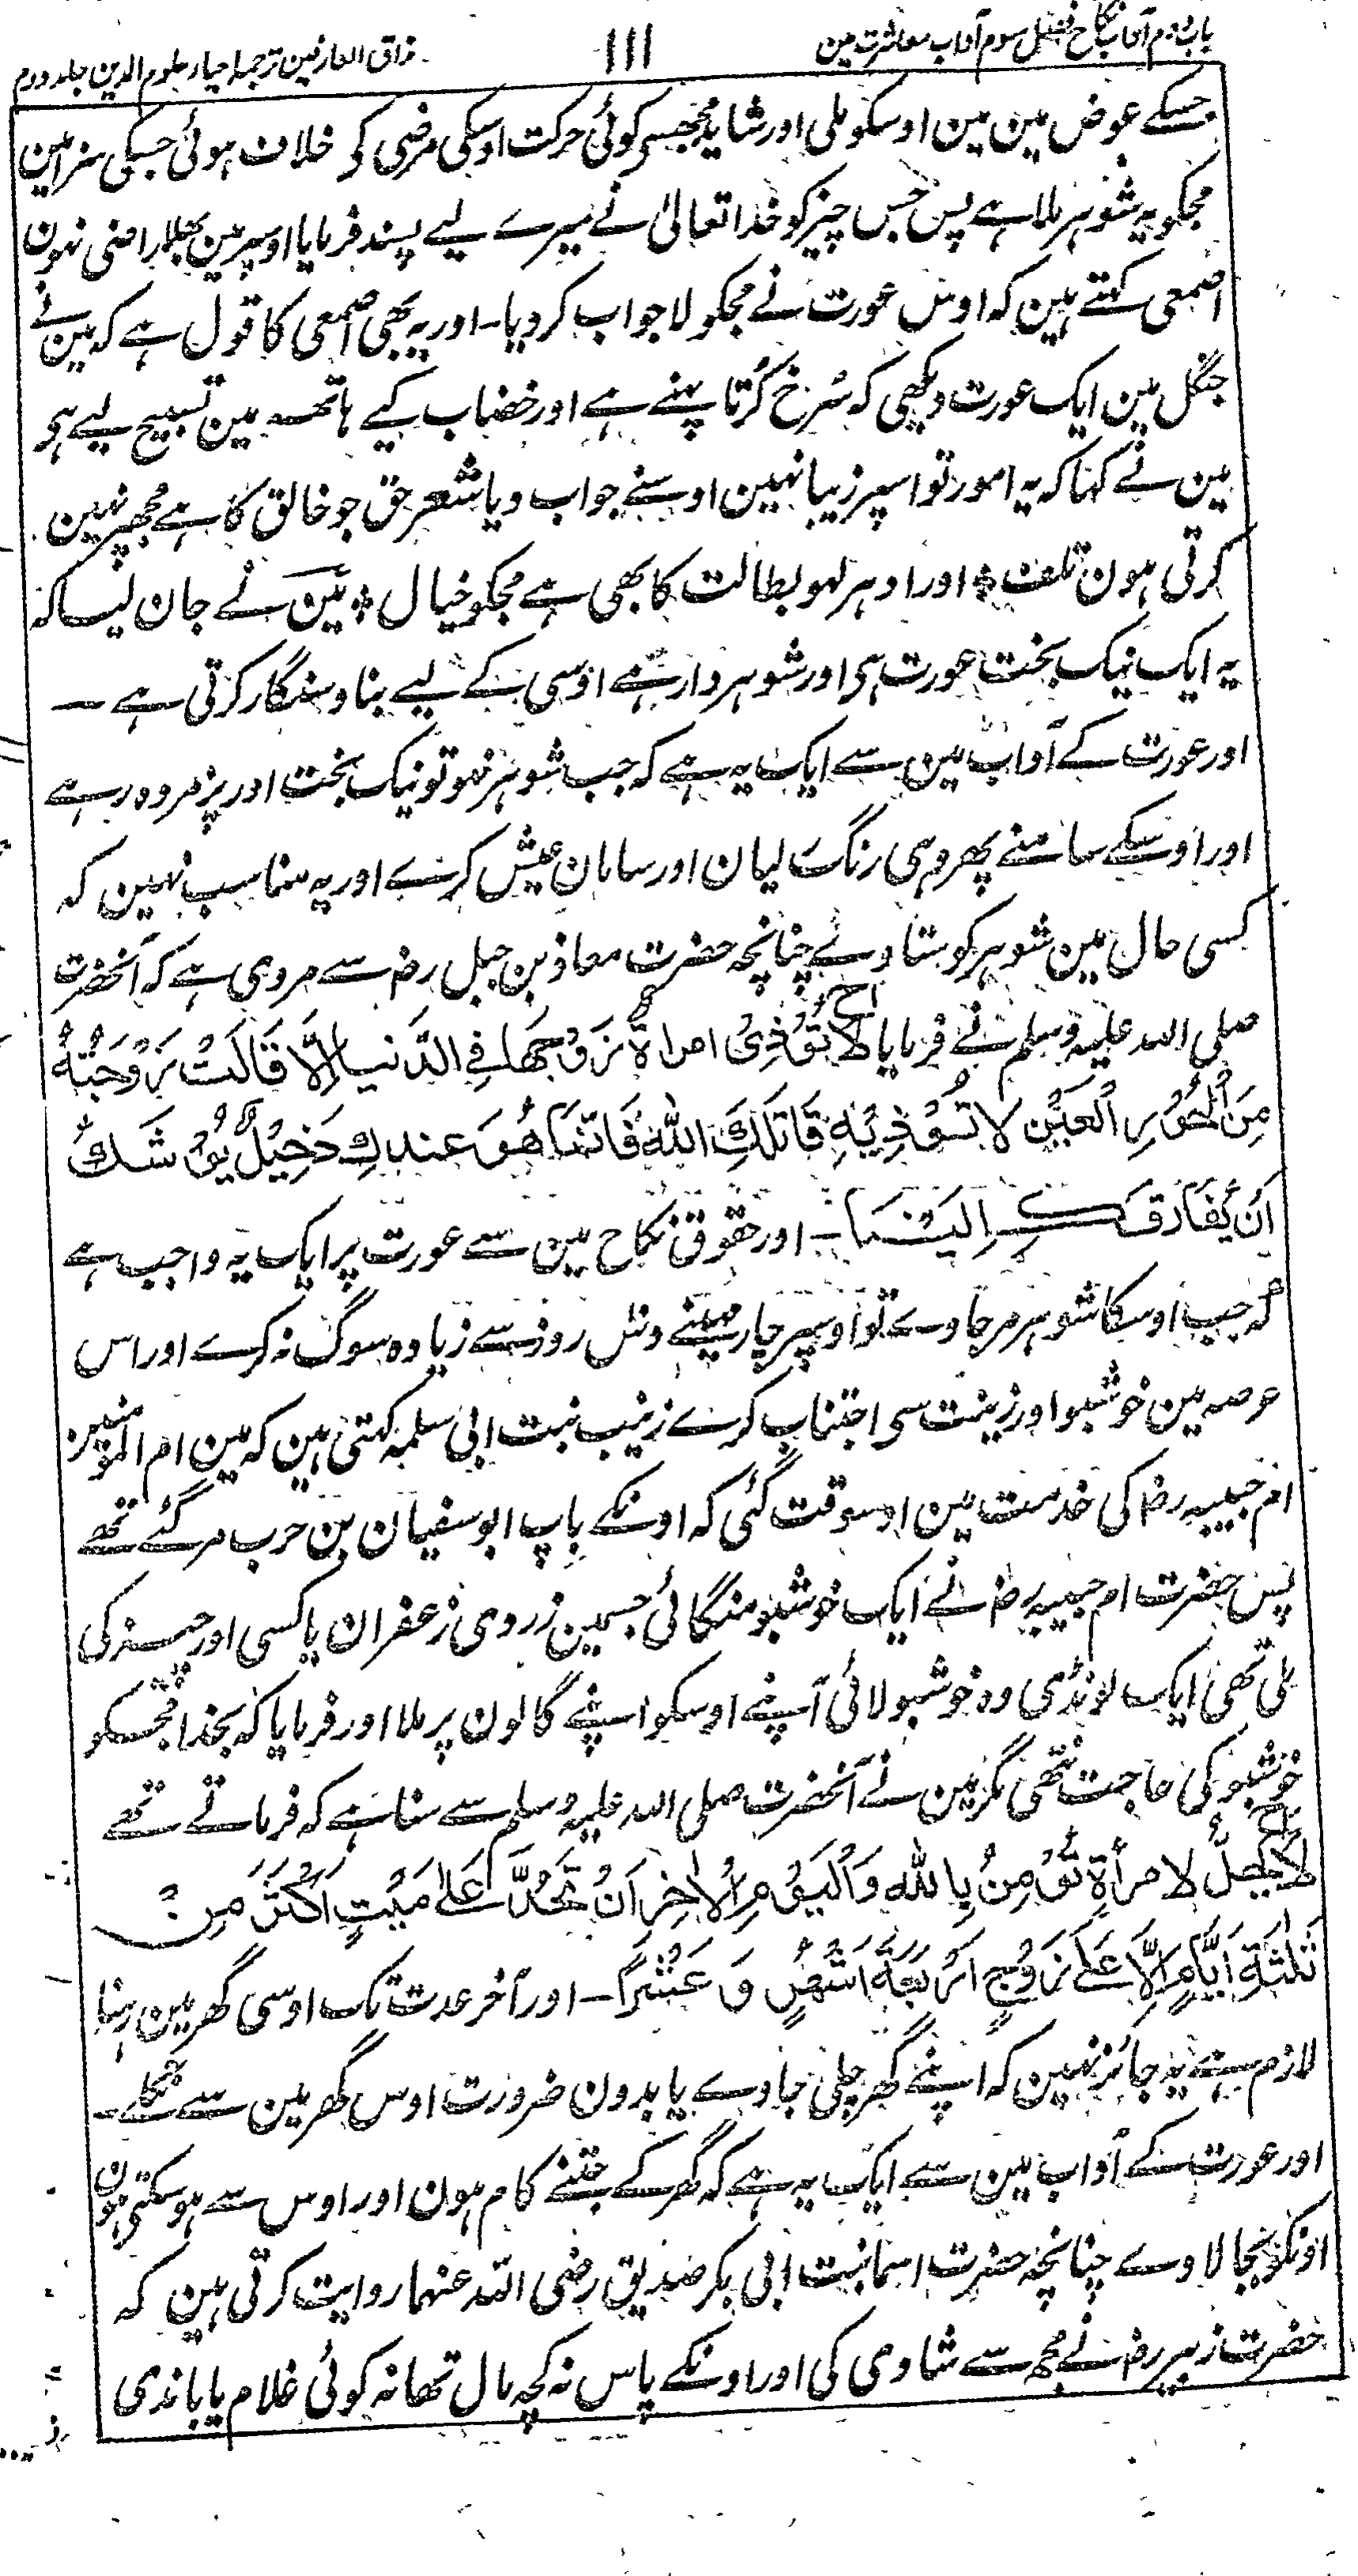 باب دوم آداب نکاح فصل سوم آداب معاشرت مین
١١١
مذاق العارفین ترجمہ احیاء علوم الدین جلد دوم
جسکے عوض مین مین اوسکو ملی اور شاید مجھسے کوئی حرکت اوسکی مرضی کی خلاف ہوئی جسکی سزا مین
مجکو یہ شوہر ملا ہے پس جس چیز کو خدا تعالیٰ نے میرے لیے پسند فرمایا اوسپر مین بھلا راضی نہون
اصمعی کہتے ہین کہ اوس عورت نے مجکو لاجواب کر دیا۔ اور یہ بھی اصمعی کا قول ہے کہ مین نے
جنگل مین ایک عورت دیکھی کہ سُرخ کُرتا پہنے ہے اور خضاب کیے ہاتھ مین تسبیح لیے ہی
مین نے کہا کہ یہ امور تو اسپر زیبا نہین اوسنے جواب دیا شعر حق جو خالق کا ہے مجھپر نہین
کرتی ہون تلف ٭ اور اودہر لہو بطالت کا بھی ہے مجکو خیال ٭ مَین نے جان لیا کہ
یہ ایک نیک بخت عورت ہی اور شوہر دار ہے اوسی کے لیے بناو سنگار کرتی ہے ۔
اور عورت کے آداب مین سے ایک یہ ہے کہ جب شوہر نہو تو نیک بخت اور پژمردہ رہے
اور اوسکے سامنے پھر وہی رنگ لیان اور سامان عیش کرے اور یہ مناسب نہین کہ
کسی حال مین شوہر کو ستاوے چنانچہ حضرت معاذ بن جبل رضہ سے مروی ہے کہ آنحضرت
صلی اللہ علیہ وسلم نے فرمایا لا تُؤْذِیْ امراۃٌ زَوْجَھَا فِی الدُّنیا اِلَّا قَالَتْ زَوْجَتُہٗ
مِنَ الْحُوْرِ الْعِیْنِ لا تُؤْذِیْہِ قَاتَلَكِ اللّٰهُ فَاِنَّمَا هُوَ عندكِ دَخِیْلٌ یُوْشَكُ
اَنْ یُّفَارِقَكِ اِلَیْنَا ۔ اور حقوق نکاح مین سے عورت پر ایک یہ واجب ہے
کہ جب اوسکا شوہر مرجاوے تو اوسپر چار مہینے دس روز سے زیادہ سوگ نہ کرے اور اس
عرصہ مین خوشبو اور زینت سی اجتناب کرے زینب بنت ابی سلمہ کہتی ہین کہ مین ام المؤمنین
ام حبیبہ رضہ کی خدمت مین اوسوقت گئی کہ اونکے باپ ابو سفیان بن حرب مر گئے تھے
پس حضرت ام حبیبہ رضہ نے ایک خوشبو منگائی جسمین زردی زعفران یا کسی اور چیز کی
ملی تھی ایک لونڈی وہ خوشبو لائی آپنے اوسکو اپنے گالون پر ملا اور فرمایا کہ بخدا مجھکو
خوشبو کی حاجت نتھی مگر مین نے آنحضرت صلی اللہ علیہ وسلم سے سنا ہے کہ فرماتے تھے
لا یَحِلُّ لا مرأۃٍ تُؤْمِنُ بِاللّٰهِ وَالْیَوْمِ الْاٰخِرِ اَنْ تَحُدَّ عَلیٰ مَیِّتٍ اَكْثَرَ مِنْ
ثَلٰثَةِ اَیَّامٍ اِلَّا عَلٰی زَوْجٍ اَرْبَعَةَ اَشْهُرٍ وَ عَشْرًا ۔ اور آخر عدت تک اوسی گھر مین رہنا
لازم ہے یہ جائز نہین کہ اپنے گھر چلی جاوے یا بدون ضرورت اوس گھر مین سے نکلے ۔
اور عورت کے آداب مین سے ایک یہ ہے کہ گھر کے جتنے کام ہون اور اوس سے ہو سکتی ہون
اونکو بجا لاوے چنانچہ حضرت اسما بنت ابی بکر صدیق رضی اللہ عنہما روایت کرتی ہین کہ
حضرت زبیر رضہ نے مجھ سے شادی کی اور اونکے پاس نہ کچھ مال تھا نہ کوئی غلام یا باندی